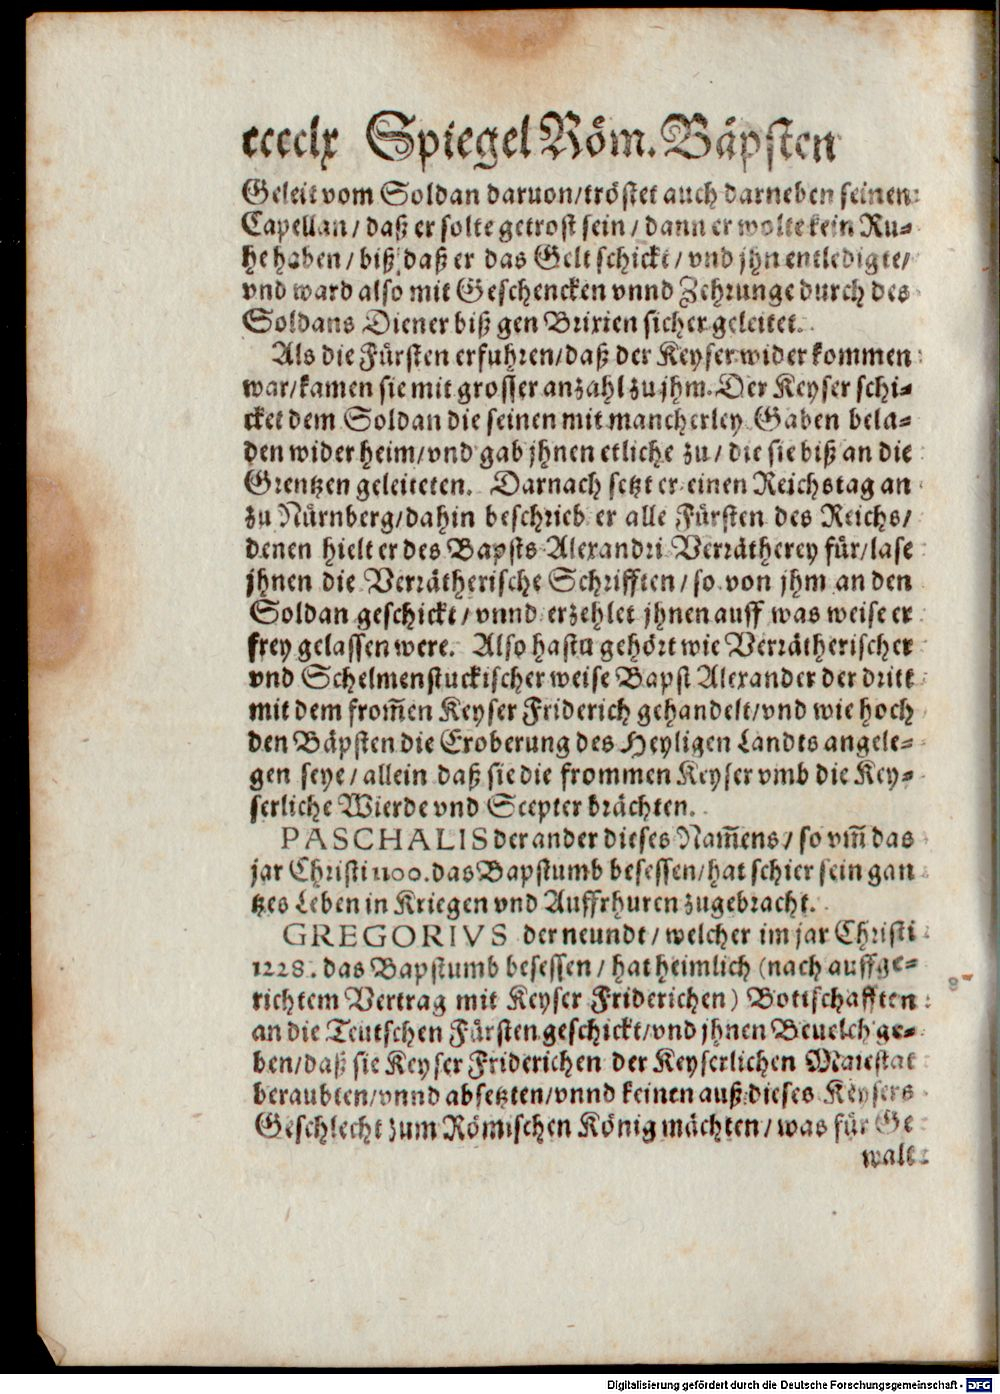 cccclx Spiegel Röm. Bäpsten
Geleit vom Soldan daruon/tröstet auch darneben seinen
Capellan/ daß er solte getrost sein/ dann er wolte kein Ru-
he haben/ biß daß er das Gelt schickt/ vnd jhn entledigte/
vnd ward also mit Geschencken vnnd Zehrunge durch des
Soldans Diener biß gen Brixien sicher geleitet.
Als die Fürsten erfuhren/daß der Keyser wider kommen
war/kamen sie mit grosser anzahl zu jhm. Der Keyser schi-
cket dem Soldan die seinen mit mancherley Gaben bela-
den wider heim/vnd gab jhnen etliche zu/ die sie biß an die
Grentzen geleiteten. Darnach setzt er einen Reichstag an
zu Nürnberg/dahin beschrieb er alle Fürsten des Reichs/
denen hielt er des Bapsts Alexandri Verrätherey für/lase
jhnen die Verrätherische Schrifften/ so von jhm an den
Soldan geschickt/ vnnd erzehlet jhnen auff was weise er
frey gelassen were. Also hastu gehört wie Verrätherischer
vnd Schelmenstuckischer weise Bapst Alexander der dritt
mit dem from̃en Keyser Friderich gehandelt/vnd wie hoch
den Bäpsten die Eroberung des Heyligen Landts angele-
gen seye/ allein daß sie die frommen Keyser vmb die Key-
serliche Wierde vnd Scepter brächten.
PASCHALIS der ander dieses Nam̃ens/ so vm̃ das
jar Christi 1100. das Bapstumb besessen/hat schier sein gan
tzes Leben in Kriegen vnd Auffrhuren zugebracht.
GREGORIVS der neundt/ welcher im jar Christi
1228. das Bapstumb besessen/ hat heimlich (nach auffge-
richtem Vertrag mit Keyser Friderichen) Bottschafften
an die Teutschen Fürsten geschickt/vnd jhnen Beuelch ge-
ben/daß sie Keyser Friderichen der Keyserlichen Maiestat
beraubten/vnnd absetzten/vnnd keinen auß dieses Keysers
Geschlecht zum Römischen König mächten/ was für Ge
walt
Digitalisierung gefördert durch die Deutsche Forschungsgemeinschaft - DFG